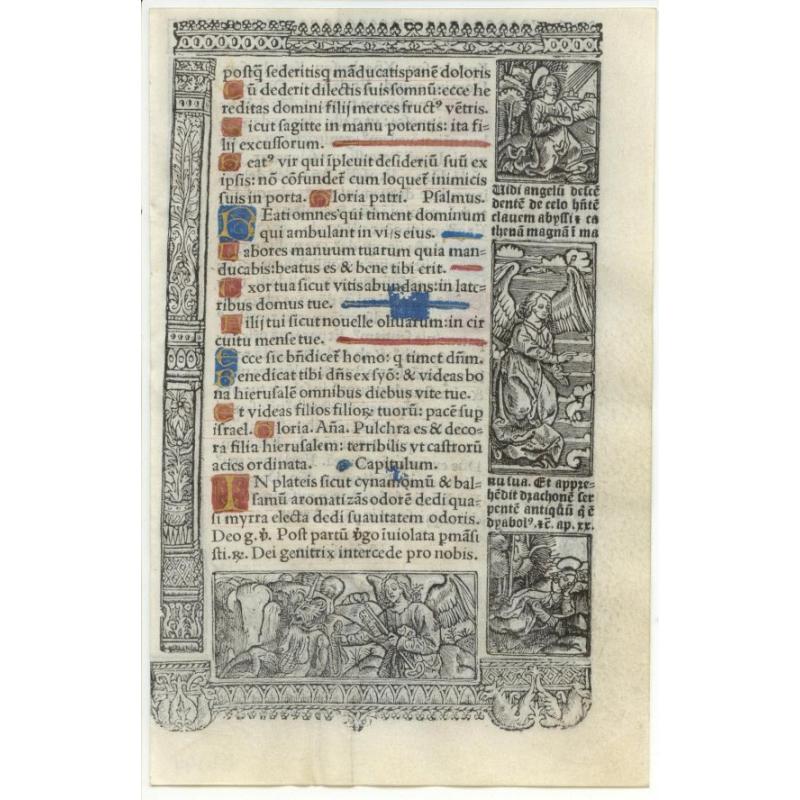 postq̃ sederitisq mãducatispanẽ doloris
Cũ dederit dilectis suis somnũ: ecce he
reditas domini filij merces fruct⁹ vẽtris.
Sicut sagitte in manu potentis: ita fi=
lij excussorum.
Beat⁹ vir qui ĩpleuit desideriũ suũ ex
ipsis: nõ cõfundet̃ cum loquet̃ inimicis
suis in porta. Gloria patri. Psalmus.
BEati omnes qui timent dominum
qui ambulant in viis eius.
Labores manuum tuarum quia man=
ducabis: beatus es & bene tibi erit.
Vxor tua sicut vitis abundans: in late=
ribus domus tue.
Filij tui sicut nouelle oliuarum: in cir
cuitu mense tue.
Ecce sic bñdicet̃ homo: q timet dñm.
Benedicat tibi dñs ex syõ: & videas bo
na hierusalẽ omnibus diebus vite tue.
Et videas filios filioꝝ tuorũ: pacẽ sup
israel. Gloria. Aña. Pulchra es & deco=
ra filia hierusalem: terribilis vt castrorũ
acies ordinata. Capitulum.
IN plateis sicut cynamomũ & bal=
samũ aromatizãs odorẽ dedi qua=
si myrra electa dedi suauitatem odoris.
Deo g. ꝟ. Post partũ ꝟgo ĩuiolata pmãsi
sti. ꝶ. Dei genitrix intercede pro nobis.
Uidi angelũ descẽ
dentẽ de celo hñtẽ
clauem abyssi ⁊ ca
thenã magnã ĩ ma
nu sua. Et appre=
hẽdit drachonẽ ser
pentẽ antiquũ q̃ ẽ
dyabol⁹. ⁊c̃. ap. xx.